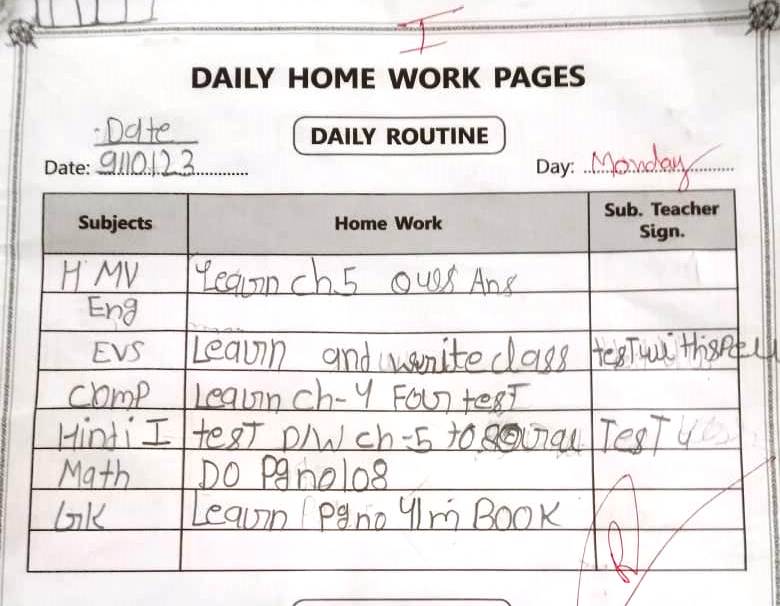 I
DAILY HOME WORK PAGES
Date
DAILY ROUTINE
Date: 9/10/23 Day: Monday
Subjects Home Work Sub. Teacher Sign.
H MV Learn ch.5 Ques Ans
Eng
EVS Learn and write class test with spell
Comp Learn ch-4 For test
Hindi I test D/W ch-5 to Test
Math DO Pg no 108
GK Learn Pg no 41 in BOOK